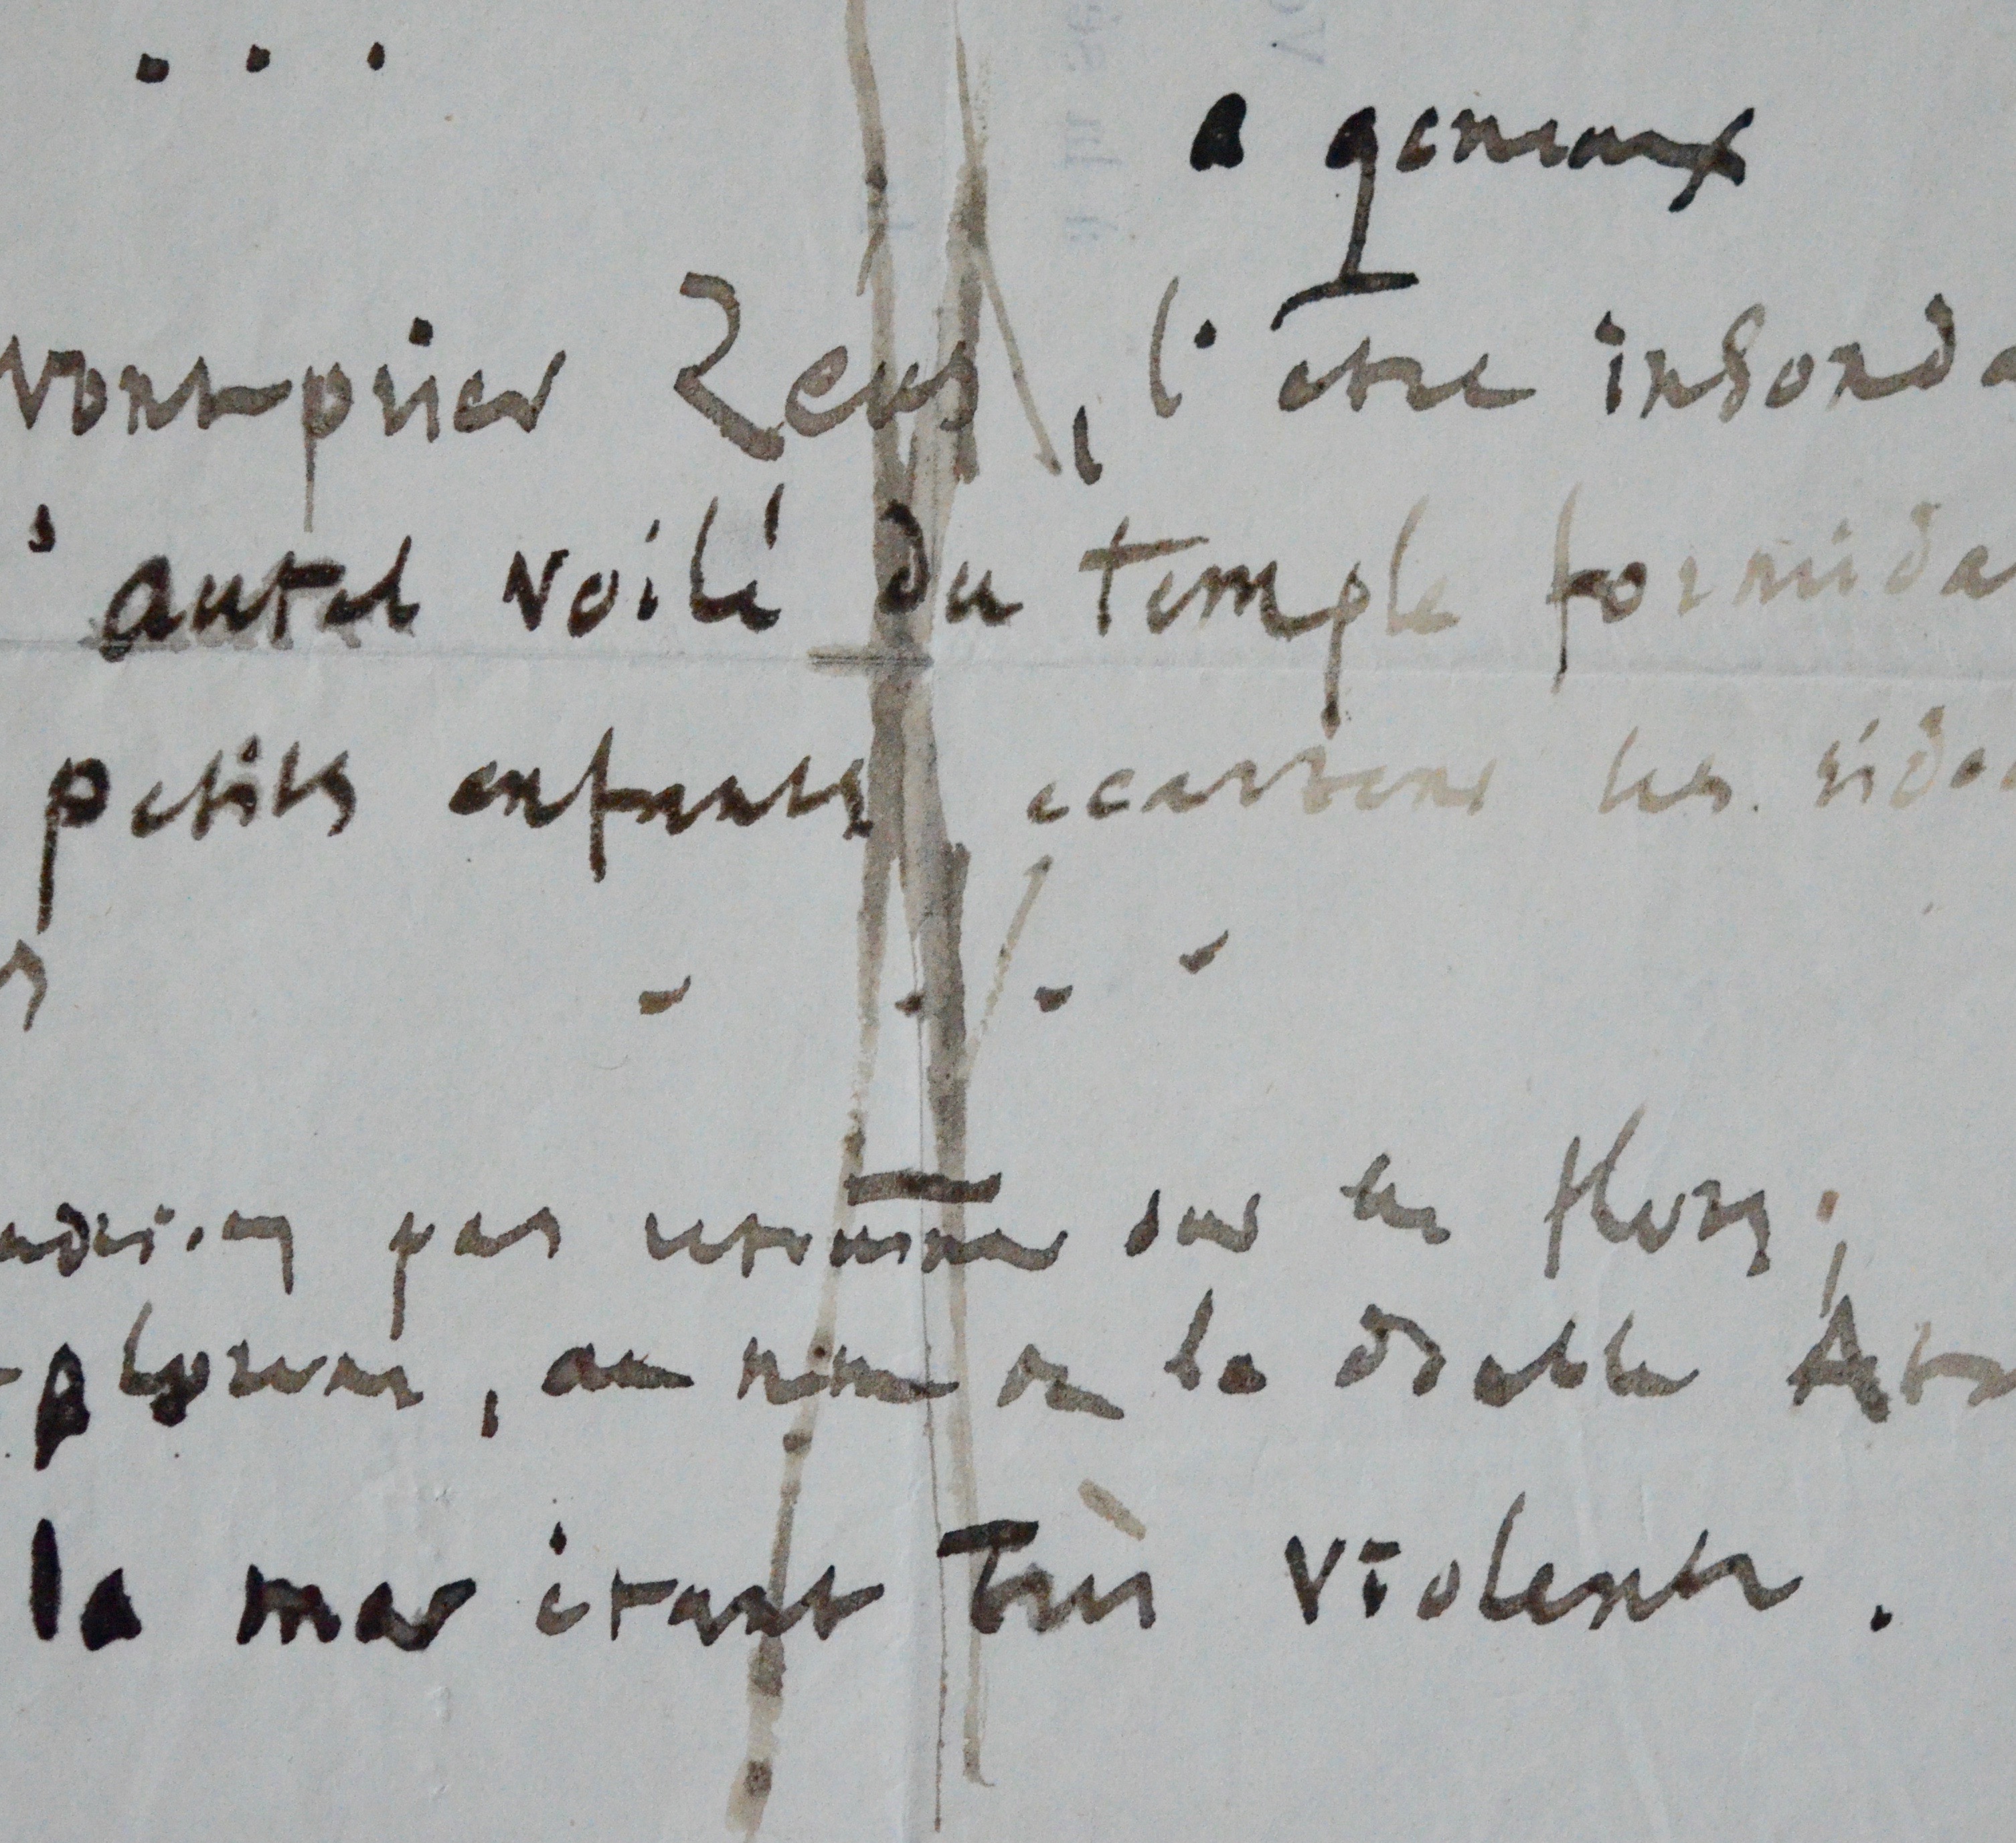 . . .
a genoux
vont prier Zeus, l'être insonda
'autel voilé du temple formida
petits enfants écartent les ridea
. . . .
pas retourner sur les flots;
plorent, au nom de la
la mer étant très violente.